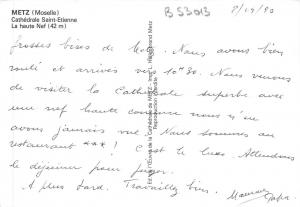 METZ (Moselle)
Cathédrale Saint-Etienne
La haute Nef (42 m)
B 53013
Grosses bises de Metz. Nous avons bien
roulé et arrivés vers 10h30. Nous venons
de visiter la Cathédrale superbe avec
une nef haute comme nous n'en
avons jamais vue. Nous sommes au
restaurant *** ! C'est le luxe. Attendons
le déjeuner pour juger.
A plus tard. Travaillez bien.
l'Œuvre de la Cathédrale de METZ
Reproduction interdite